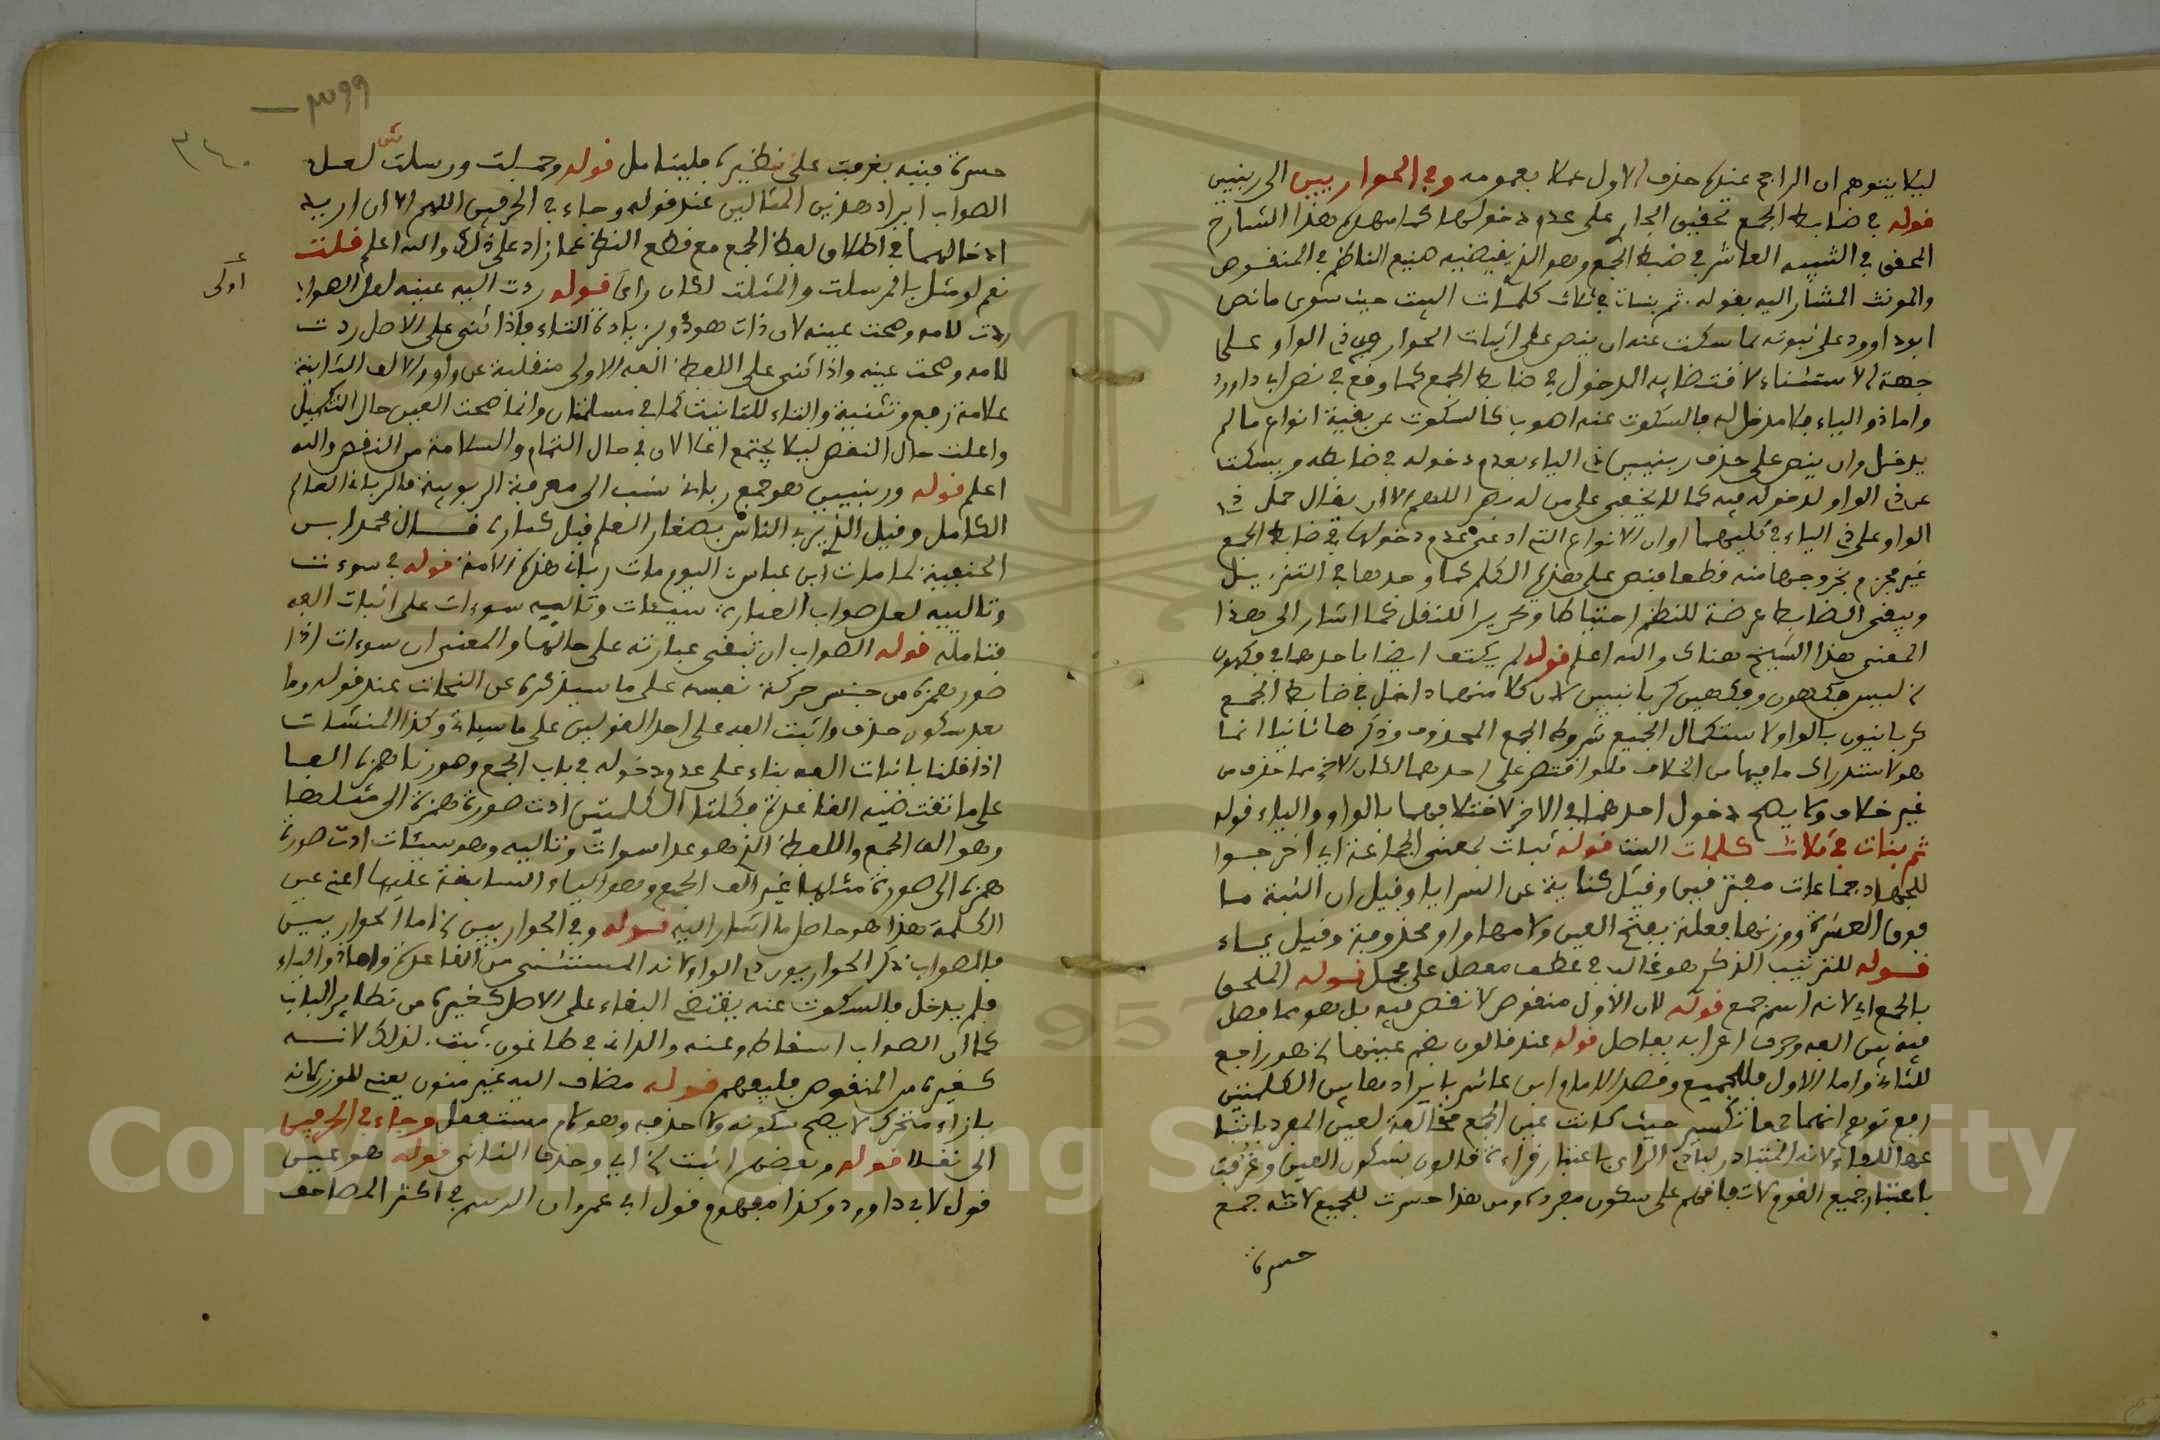 ليلا يتوهم ان الراجح عندها حذف الاول عملا بعمومه وفي الحواريين الى ربنيين
قوله في ضابط الجمع تحقيق الجار على عدم دخولها كما سهل هذا الشارح
المحقق في التنبيه العاشر في ضبط الجمع وهو الذي يقتضيه صنيع الناظم في المنقوص
والمونث المشار اليه بقوله ثم بنات في ثلاث كلمات البيت حيث سوى ما نص
ابو داوود على ثبوته بما سكت عنه ان ينص على اثبات الحواريون ذي الواو على
جهة الاستثناء لاقتضايه الدخول في ضابط الجمع كما وقع في نص ابي داوود
واما ذو الياء فلا مدخل له فالسكوت عنه اصوب كالسكوت عن بقية انواع ما لم
يدخل وان ينص على حذف ربنيين ذي الياء بعدم دخوله في ضابطه ويسكت
عن ذي الواو لدخوله فيه كما لا يخفى على من له بصر اللهم الا ان يقال حمل ذي
الواو على ذي الياء في كليهما او ان الانواع التي ادعى عدم دخولها في ضابط الجمع
غير مجزوم بخروجها منه قطعا فينص على هذه الكلم كما وجدها في التنزيل
ويبقى الضابط عرضة للنظم احتياطا وتحريرا للنقل كما اشار الى هذا
المعنى هذا الشيخ هناك والله اعلم قوله لم يكتف ايضا باحدهما في فكهون
ليس فكهون وفكهين كربانيين لان كلا منهما داخل في ضابط الجمع
كربانيون بالواو لاستكمال الجميع شروط الجمع المحذوف وذكرها ثانيا انما
هو لاستدراك ما فيها من الخلاف فلو اقتصر على احدهما لكان الاخر مما حذف من
غير خلاف ولا يصح دخول احدهما في الاخر لاختلافهما بالواو والياء قوله
ثم بنات في ثلاث كلمات البيت قوله ثبات بمعنى الجماعة اي اخرجوا
للجهاد جماعات مفترقين وقيل كناية عن السرايا وقيل ان الثبة ما
فوق العشرة ووزنها فعلة بفتح العين ولامها واو محذوفة وقيل ياء
قوله للترتيب الذكر هو غالب في عطف مفصل على مجمل قوله الملحق
بالجمع اي لانه اسم جمع قوله لان الاول منقوص لا نقص فيه بل هو مما فصل
فيه بين الفه وحرف اعرابه بفاصل قوله عند قالون بضم عينها هو راجع
للثاني واما الاول فللجميع وقصد الامام ابن عاشر بايراد مقابل الكلمتين
رفع توهم انهما جمعا تكسير حيث كانت عين الجمع مخالفة لعين المفرد باتباعها
للفاء لانه المتبادر لبادي الراي باعتبار قراءة قالون بسكون العين وغرفت
باعتبار جميع القراء لاتفاقهم على سكون مفرده ومن هذا حسرت للجميع لانه جمع
حسرة
٣٩٩
٣٤٠
حسرة فنبه بغرفت على نظيره فليتامل قوله وجملت ورسلت لعل
الصواب ايراد هذين المثالين عند قوله وجاء في الحرفين اللهم الا ان اريد
ادخالهما في اطلاق لفظ الجمع مع قطع النظر عما زاد على ذلك والله اعلم قلت
نعم لو مثل بالمرسلت والمثلت لكان راى قوله ردت اليه عينه لعل الصواب
اولى
ردت لامه وصحت عينه لان ذات هو ذو بزيادة التاء فاذا ثني على الاصل ردت
لامه وصحت عينه واذا ثني على اللفظ الفه الاولى منقلبة عن واو والالف الثانية
علامة رفع وتثنية والتاء للتانيث كما في مسلمتان وانما صحت العين حال التكميل
واعلت حال النقص ليلا يجتمع اعلالان في حال التمام والسلامة من النقص والله
اعلم قوله وربنيين هو جمع رباني نسب الى معرفة الربوبية فالرباني العالم
الكامل وقيل الذي يربي الناس بصغار العلم قبل كباره قال محمد ابن
الحنفية لما مات ابن عباس اليوم مات رباني هذه الامة قوله في سوءات
وتالييه لعل صواب العبارة سيئات وتالييه سوءات على اثبات الفه
فتامله قوله الصواب ان تبقى عبارته على حالها والمعنى ان سوءات اذا
صور همزه من جنس حركة نفسه على ما سيذكره عن النحات عند قوله وما
بعد سكون حذف واثبت الفه على احد القولين على ما سياتي وكذا المنشات
اذا قلنا باثبات الفه بناء على عدم دخوله في باب الجمع وصورنا همزه الفا
على ما تقتضيه القاعدة فكلتا الكلمتين ادت صورة همزه الى مثلها
وهو الف الجمع واللفظ الذي هو عدا سوات وتاليه وهو سيئات ادت صورة
همزه الى صورة مثلها غير الف الجمع وهو الياء السابقة عليها اعني عين
الكلمة هذا هو حاصل ما اشار اليه قوله وفي الحواريين اما الحواريين
فالصواب ذكر الحواريون ذي الواو لانه المستثنى من القاعدة واما ذو الياء
فلم يدخل فالسكوت عنه يقتضي البقاء على الاصل كغيره من نظاير الباب
كما ان الصواب اسقاط وعنه والداني في طاغون ثبت لذلك لانه
كغيره من المنقوص فليفهم قوله مضاف اليه غير منون يعني للوزن كانه
بازاء متحرك لا يصح سكونه ولا حذفه وهو لام مستفعل وجاء في الحرفين
الى نقلا قوله وبعضهم اثبت اي وحذف الثاني قوله هو عين
قول لابي داوود وكذا مفهوم قول ابي عمرو ان الرسم في اكثر المصاحف